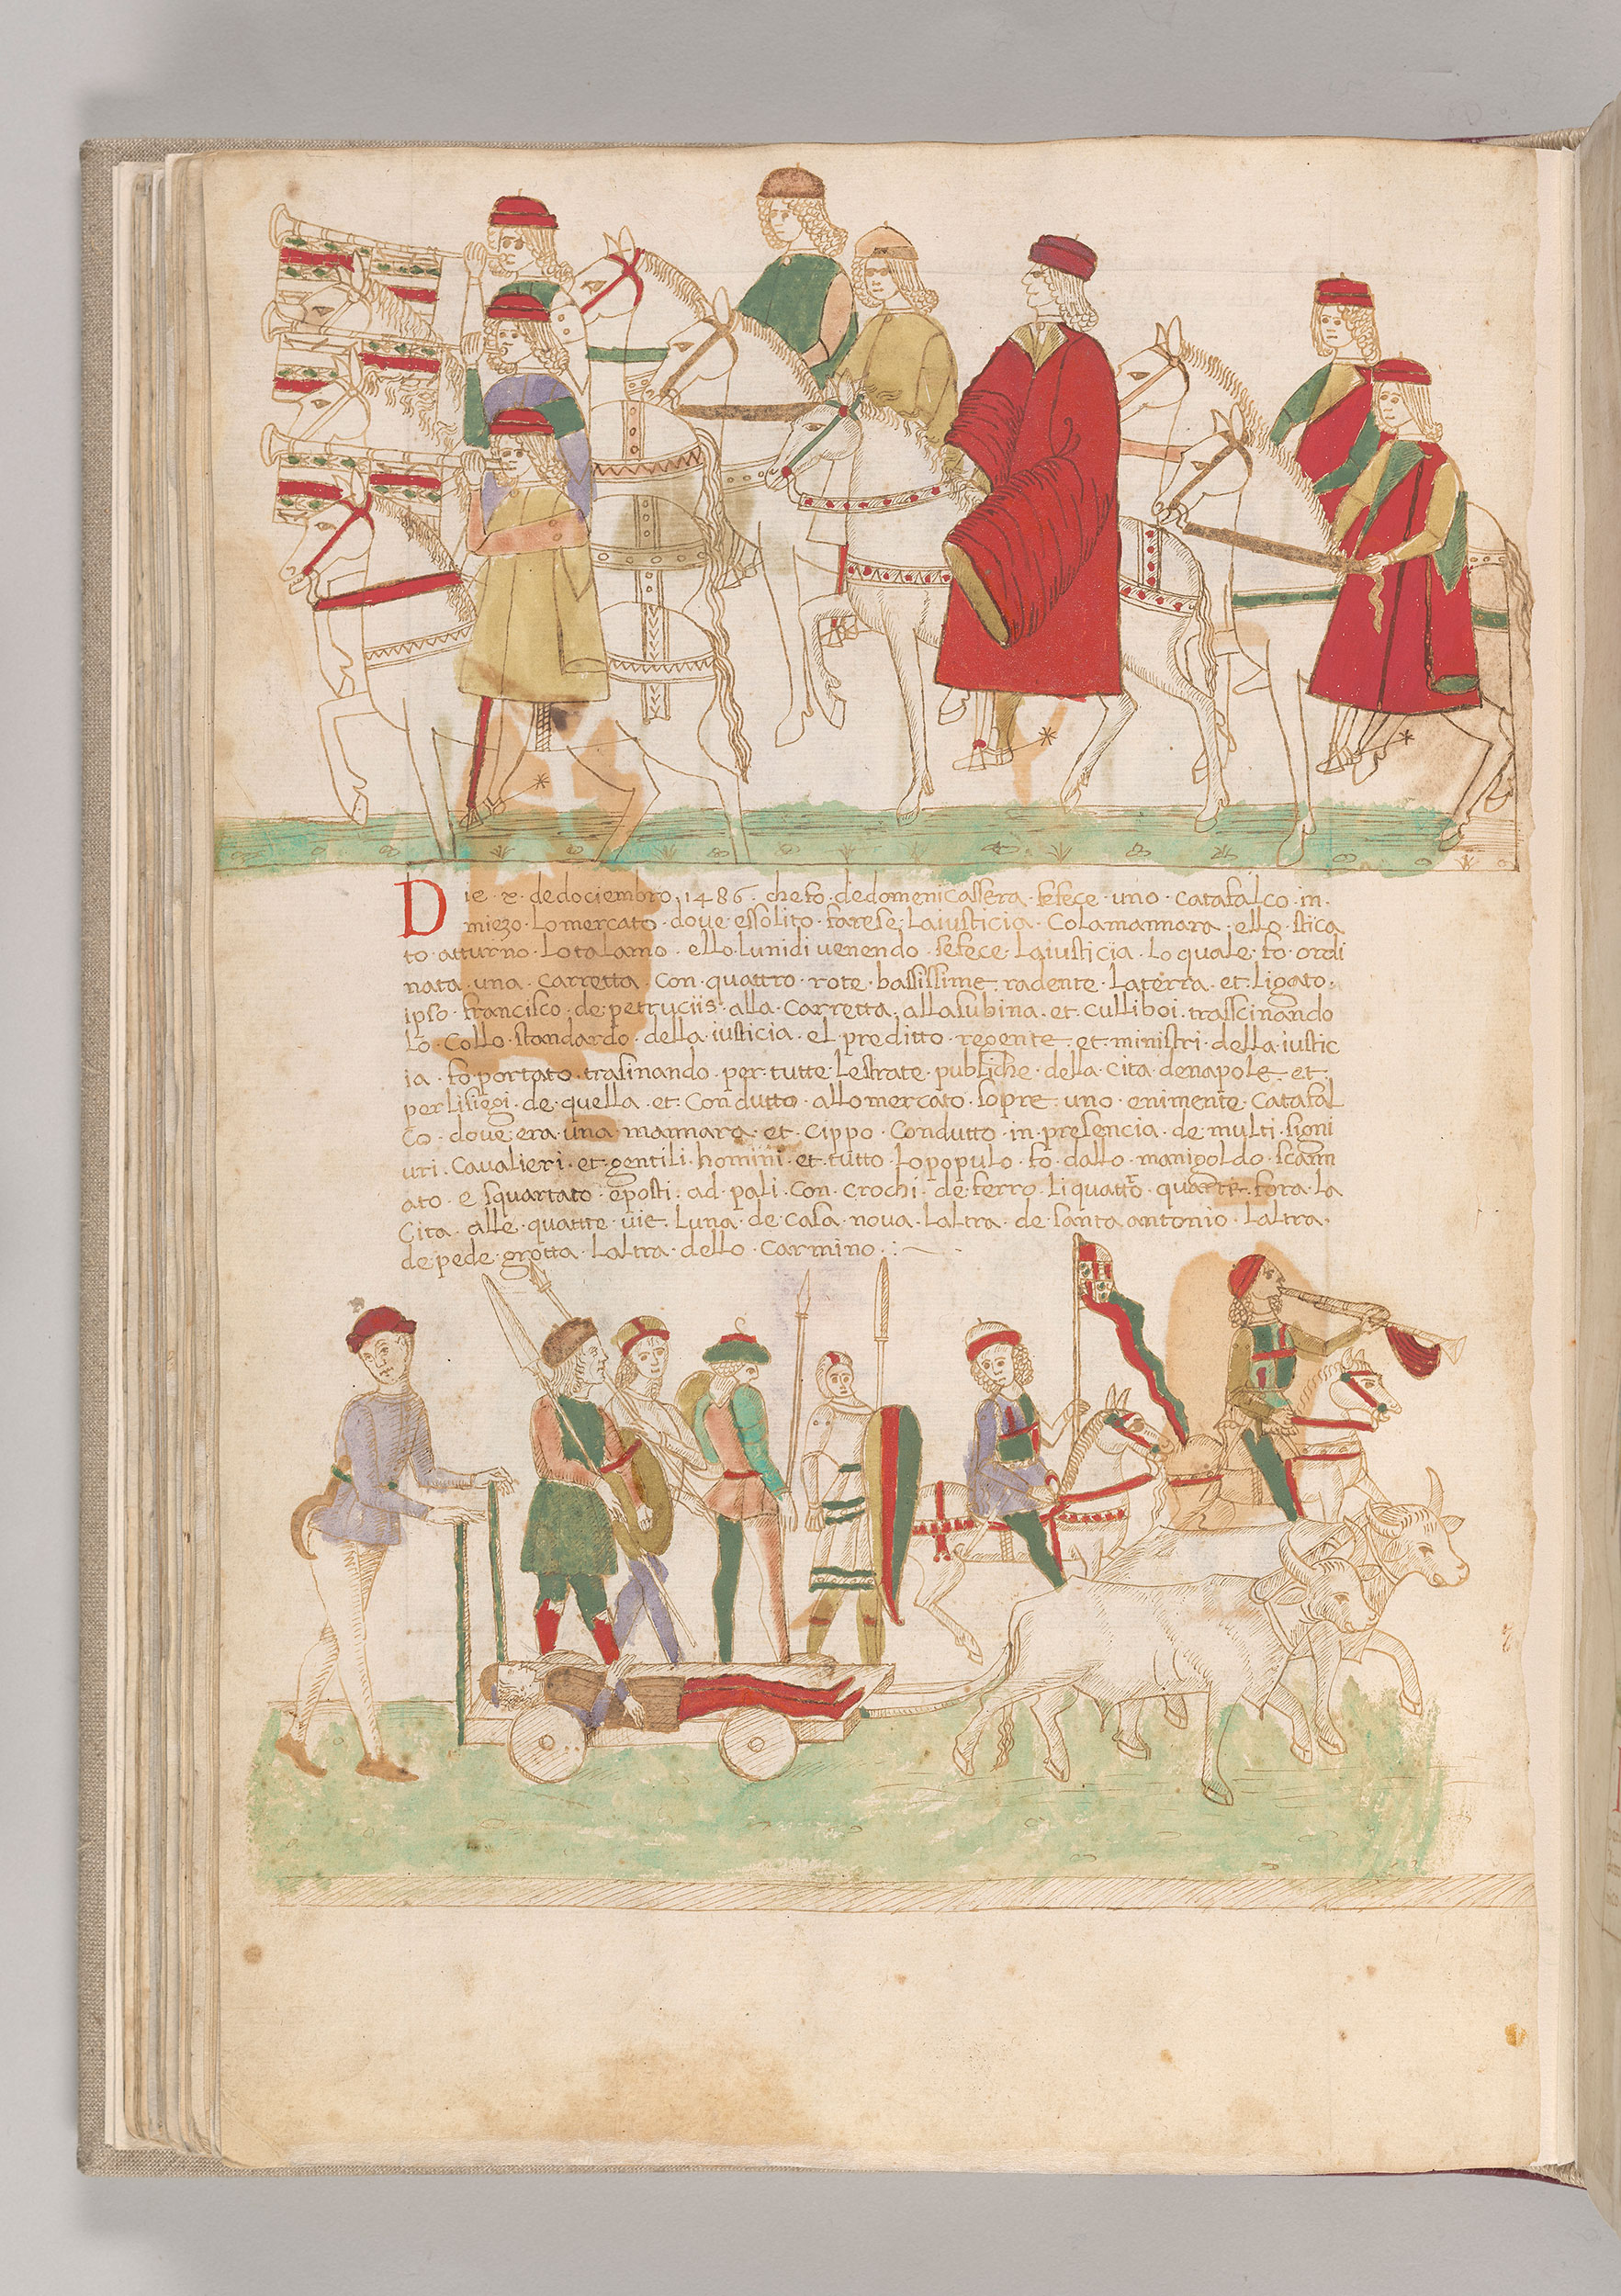 Die · x · dedociembro · 1486 · che fo · dedomenicassera · se fece · uno · catafalco · in ·
miezo · Lomercato · dove essolito · farese · Laiusticia · Colamannara · ello · stica
to · atturno · Lotalamo · ello Lunidi venendo · sefece · Laiusticia · Lo quale · fo · ordi
nata · una · Carretta · Con · quattro · rote · bassissime · radente · Laterra · et · Ligato ·
ipso · francisco · de petruciis · alla · Carretta · allasubina · et · culli boi · trassinando
Lo · Collo · standardo · della · iusticia · el preditto · regente · et · ministri · della · iustic
ia · fo portato · trasinando · per · tutte · Lestrate · publiche · della · Cita · denapole · et ·
perlisiegi · de · quella · et · Condutto · allo mercato · sopre · uno · eminente · Catafal
Co · dove era · una · mannara · et · Cippo · Condutto · in · presencia · de · multi · signi
uri · Cavalieri · et · gentili · homini · et · tutto · Lo populo · fo · dallo · manigoldo · scann
ato · e · squartato · e posti · ad · pali · Con · Crochi · de · ferro · Li quattro · quarte · fora · La
Cita · alle · quattre · vie · Luna · de · Casa · nova · Laltra · de · santa antonio · Laltra ·
de pede · grotta · Laltra · dello · Carmino ·